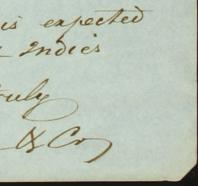 is expected
Indies
truly
& Co